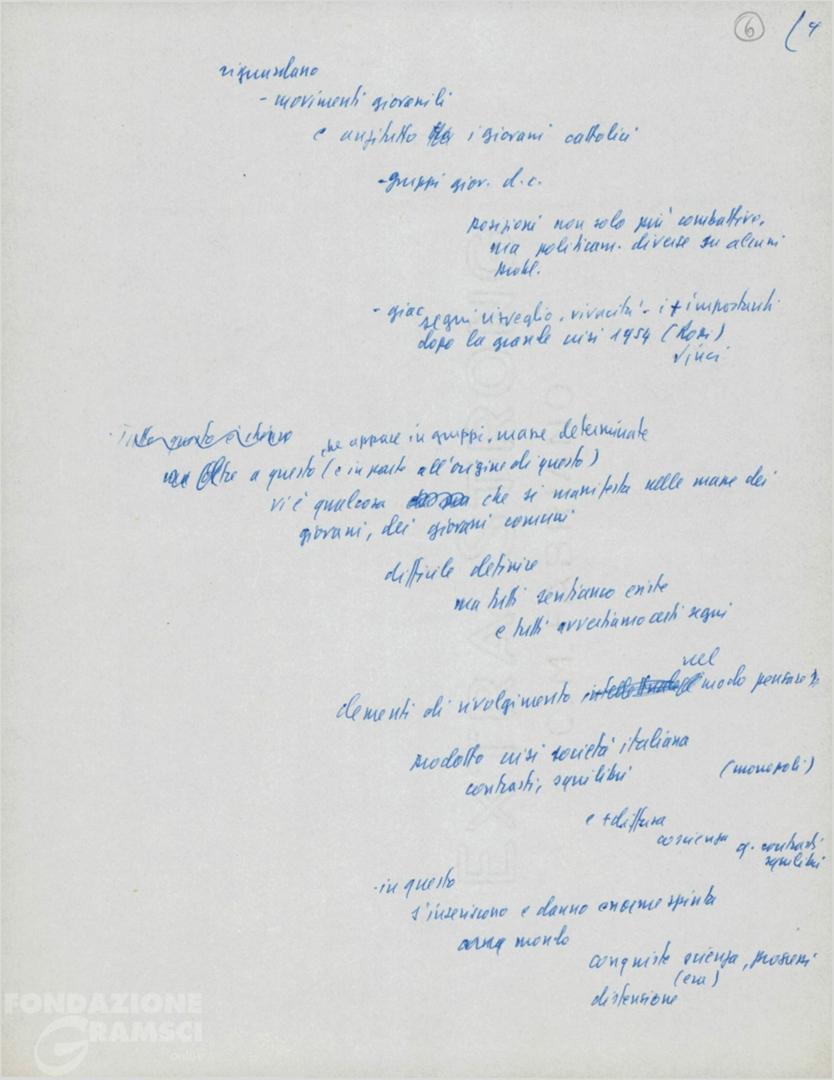 6 (4
riguardano
- movimenti giovanili
e anzitutto i giovani cattolici
- gruppi giov. d.c.
posizioni non solo più combattive,
ma politicam. diverse su alcuni
probl.
- giac
segni risveglio, vivacità - i + importanti
dopo la grande crisi 1954 (Rossi)
Vinci
Tutto questo
che appare in gruppi, masse determinate
Oltre a questo (e in parte all'origine di questo)
vi è qualcosa che si manifesta nelle masse dei
giovani, dei giovani comuni
difficile definire
ma tutti sentiamo esiste
e tutti avvertiamo certi segni
nel
elementi di rivolgimento modo pensare
prodotto crisi società italiana
contrasti, squilibri (monopoli)
e + diffusa
coscienza q. contrasti
squilibri
- in questo
s'inseriscono e danno enorme spinta
mondo
conquiste scienza, progressi
(era)
distensione
FONDAZIONE
GRAMSCI
online